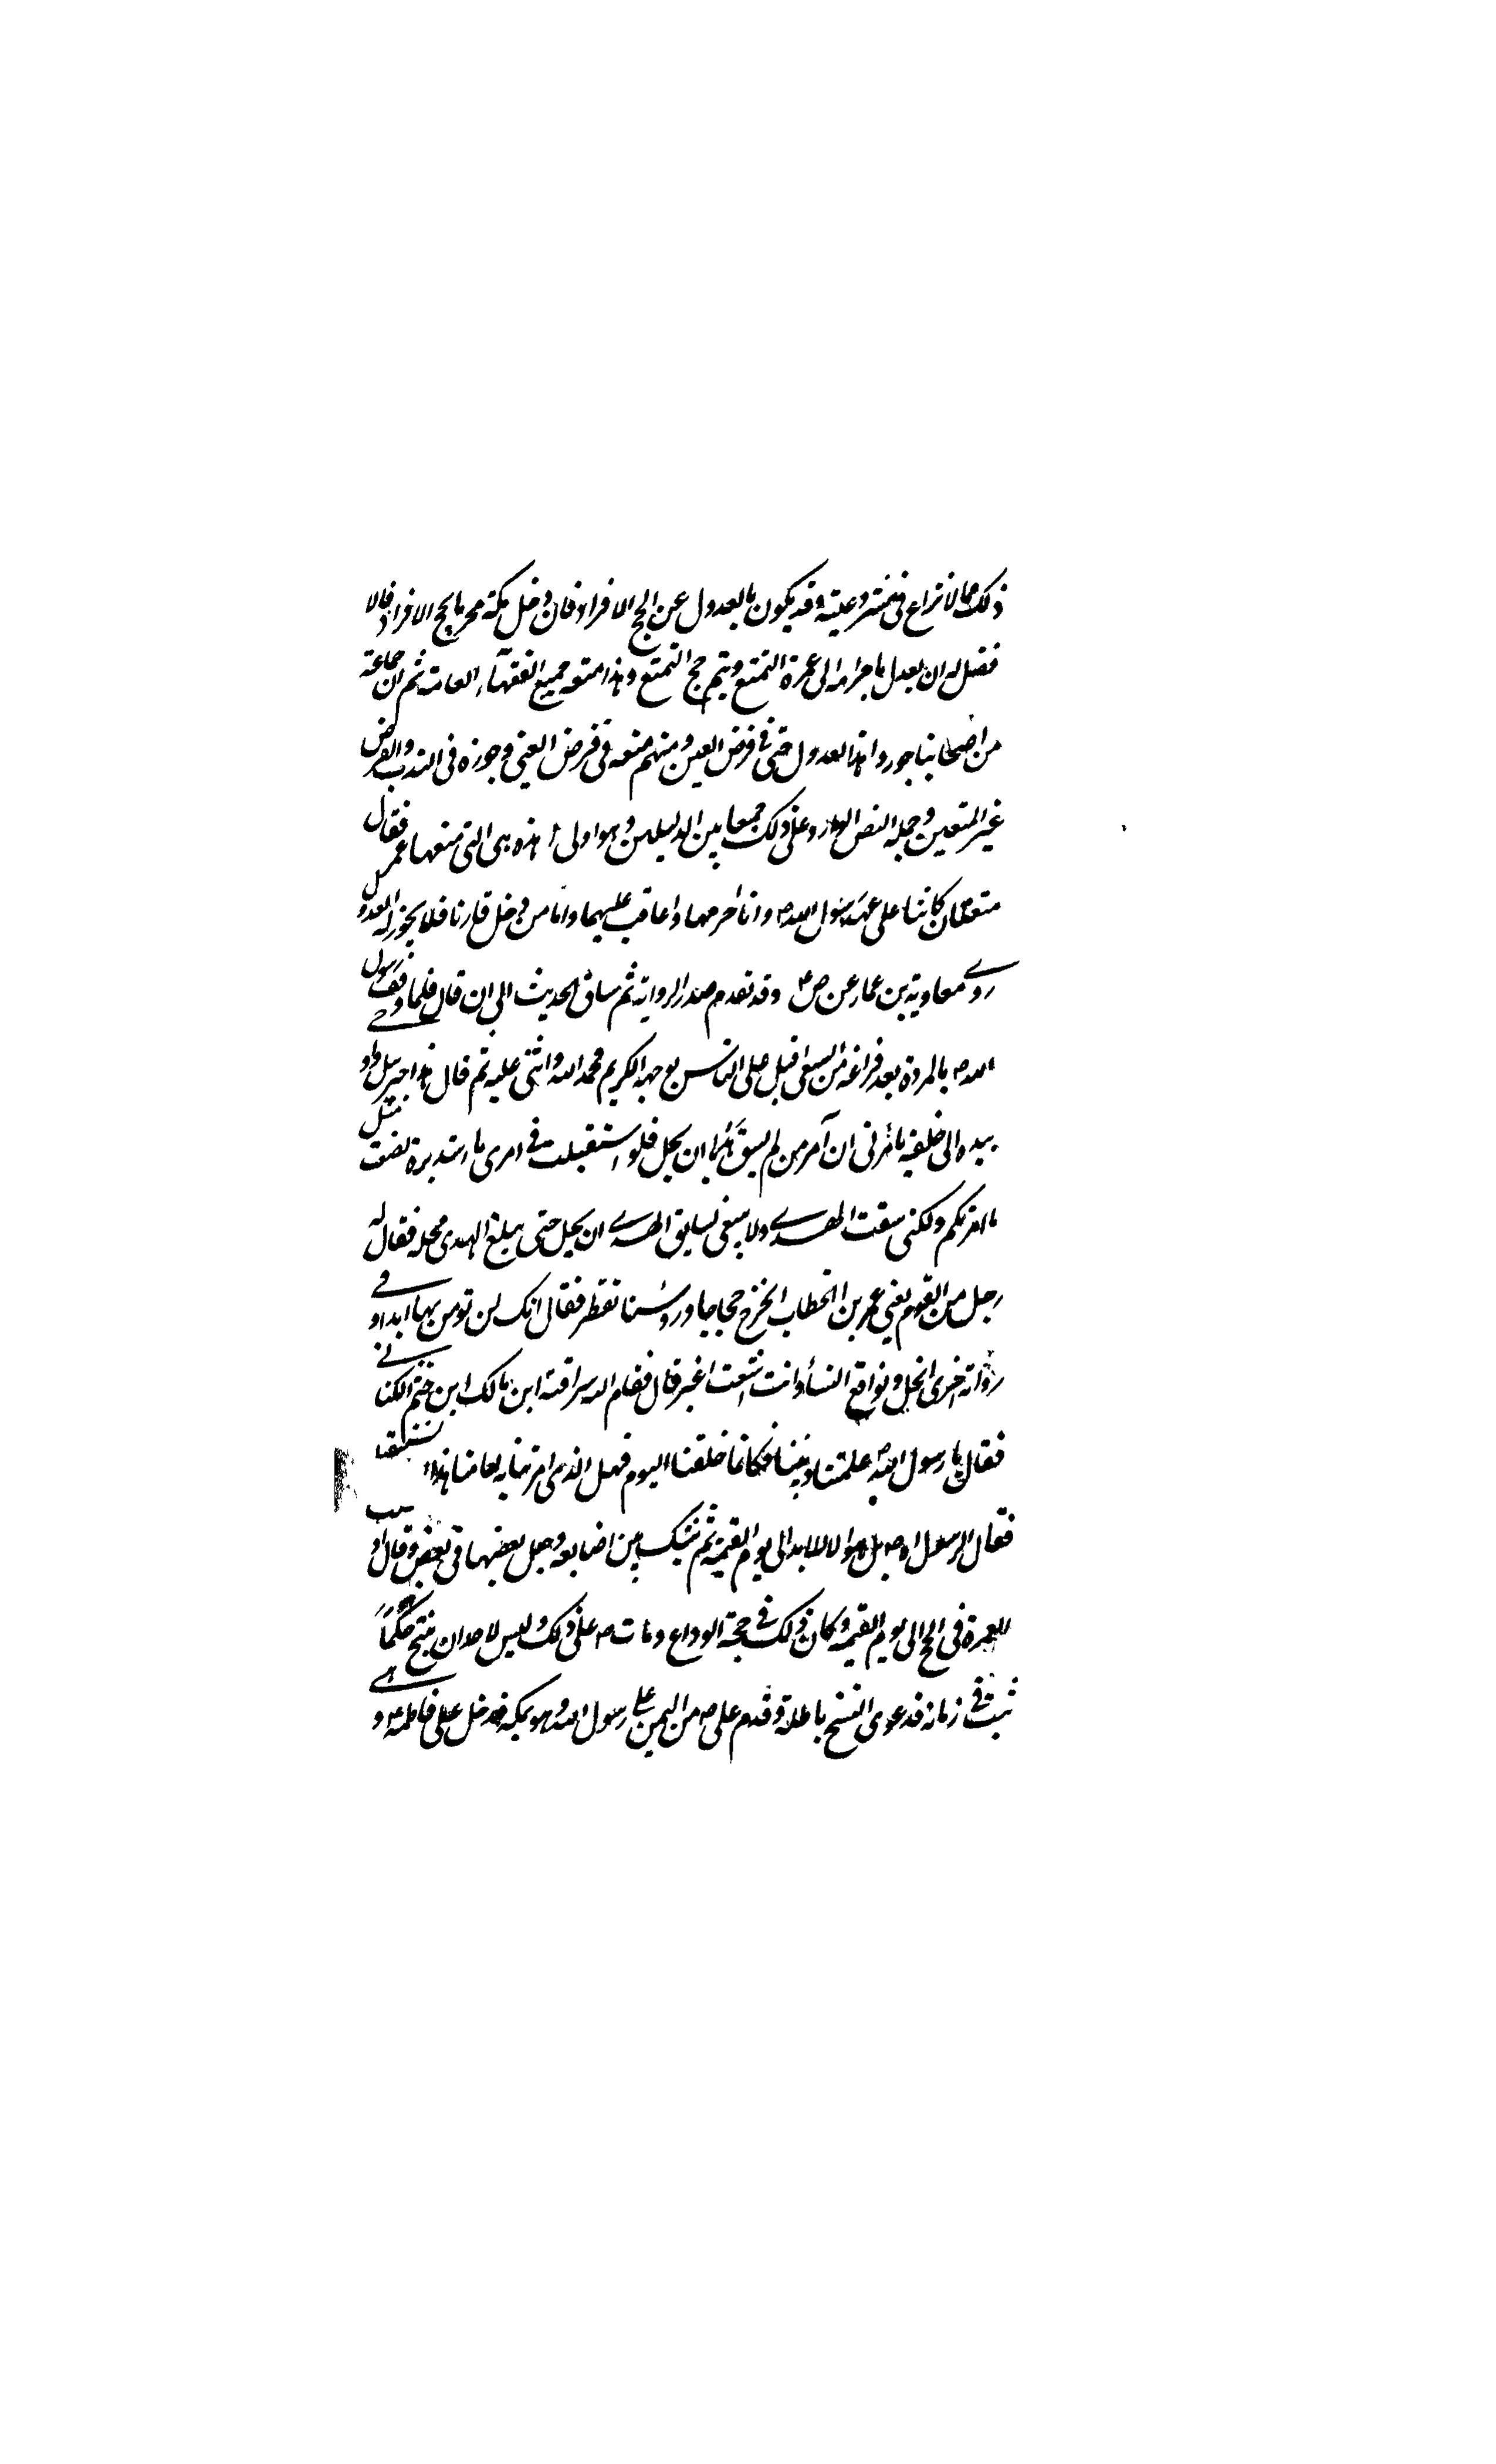 ذلك مما لا نزاع في مشروعيته وقد يكون بالعدول عن الحج الافراد فان دخل مكة محرما بحج الافراد فالا
فضل له ان يعدل باحرامه الى عمرة التمتع ويتم حج التمتع وهذا منعه جميع الفقهآء العامة ثم ان جماعة
من اصحابنا جوزوا هذا العدول حتى في فرض العين ومنهم منعه في فرض العيني وجوزه في الندب والفرض
غير المتعين وحمله النص الوارد على ذلك جمعا بين الدليلين وهو اولى هذه هي التي منعها عمر فقال
متعتان كانتا على عهد رسول الله ص وانا احرمهما واعاقب عليهما واما من دخل قارنا فلا يجوز له العدول
روى معاوية بن عمار عن ص ع وقد تقدم صدر الرواية ثم ساق الحديث الى ان قال فلما وقف رسول
الله ص بالمروة بعد فراغه من السعى اقبل على الناس بوجهه الكريم فحمد الله واثنى عليه ثم قال هذا جبرئيل واو
بيده الى خلفه يأمرني ان آمر من لم يسق هديا ان يحل فلو استقبلت في امرى ما استدبرة لصنعت مثل
ما امرتكم ولكني سقت الهدى ولا ينبغي لسايق الهدى ان يحل حتى يبلغ الهدى محله فقال له
رجل من القوم يعني عمر بن الخطاب انخرج حجاجا ورؤسنا تقطر فقال انك لن تومن بها ابدا وفي
رواية اخرى انحل ونواقع النسأ وانت اشعث اغبر قال فقام اليه سراقة ابن مالك ابن خثعم الكناني
فقال يا رسول الله ص علمتنا ديننا فكانما خلقنا اليوم فهل الذى امرتنا به لعامنا هذا
فقال الرسول الله ص بل هو للابد الى يوم القيمة ثم شبك بين اصابعه وجعل بعضها في بعض وقال دخلت
العمرة في الحج الى يوم القيمة وكان ذلك في حجة الوداع ومات ص على ذلك وليس لاحد ان ينسخ حكما
ثبت في زمانه فدعوى النسخ باطلة وقدم على ع من اليمن على رسول الله وهو بمكة فدخل على فاطمة ع وهي